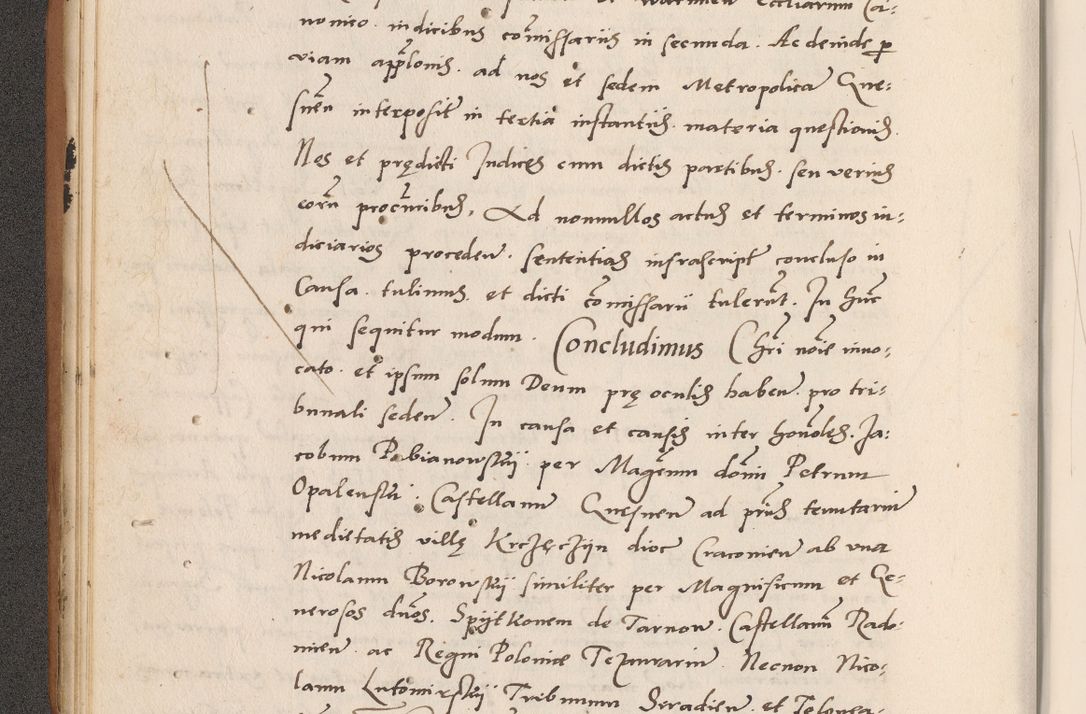 nonico . iudicibus comissariis in secunda . Ac deinde p
viam applonis . ad nos et sedem Metropolita Gne:
snen interposit in tertia instantiis . materia questionis .
Nos et prędicti Iudices cum dictis partibus . seu verius
eorum procuribus, Ad nonnullos actus et terminos iu:
diciarios proceden . sententias infrascript concluso in
Causa . tulimus . et dicti comissarii tulerunt . In hunc
qui sequitur modum . Concludimus Chri noie inuo:
cato . et ipsum solum Deum prę oculis haben . pro tri:
bunali seden . In causa et causis inter honoles . Ia:
cobum Pabianowskij . per Magcum domi Petrum
Opalenski . Castellanum Gnesnen ad pns tenutarium
medietatis villę Krczęczijn dioc Cracouien ab una
Nicolaum Borowskij similiter per Magnificum et Ge:
nerosos duos . Spijtkonem de Tarnow . Castellanum Rado:
mien . ac Regni Polonie Tezaurarium . Necnon Nico:
laum Lutomirskij Tribunum Siradien . et Telonea: